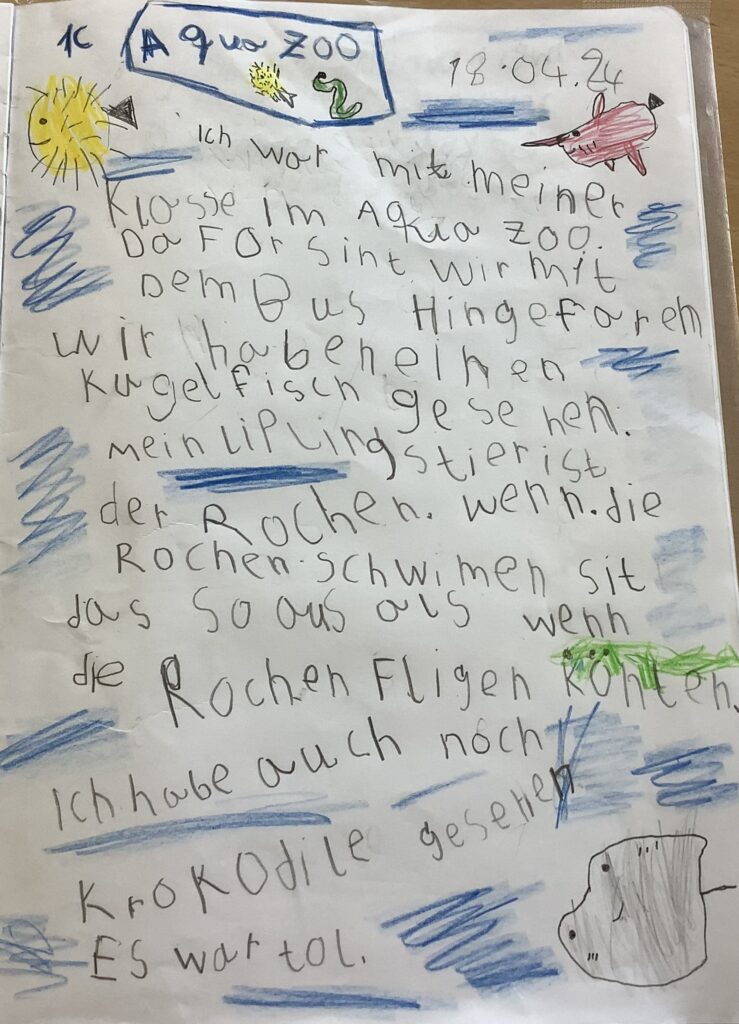 1C Aqua ZOO
18.04.24
Ich war mit meiner
Klasse im Aqua ZOO.
DaFOr sint wir mit
Dem Bus Hingefaren
wir haben einen
Kugelfisch gesehen.
mein LiPLingstier ist
der Rochen. wenn. die
Rochen schwimen sit
das so aus als wenn
die Rochen Fligen konten.
Ich habe auch noch
KroKOdile gesehen
ES war tol.